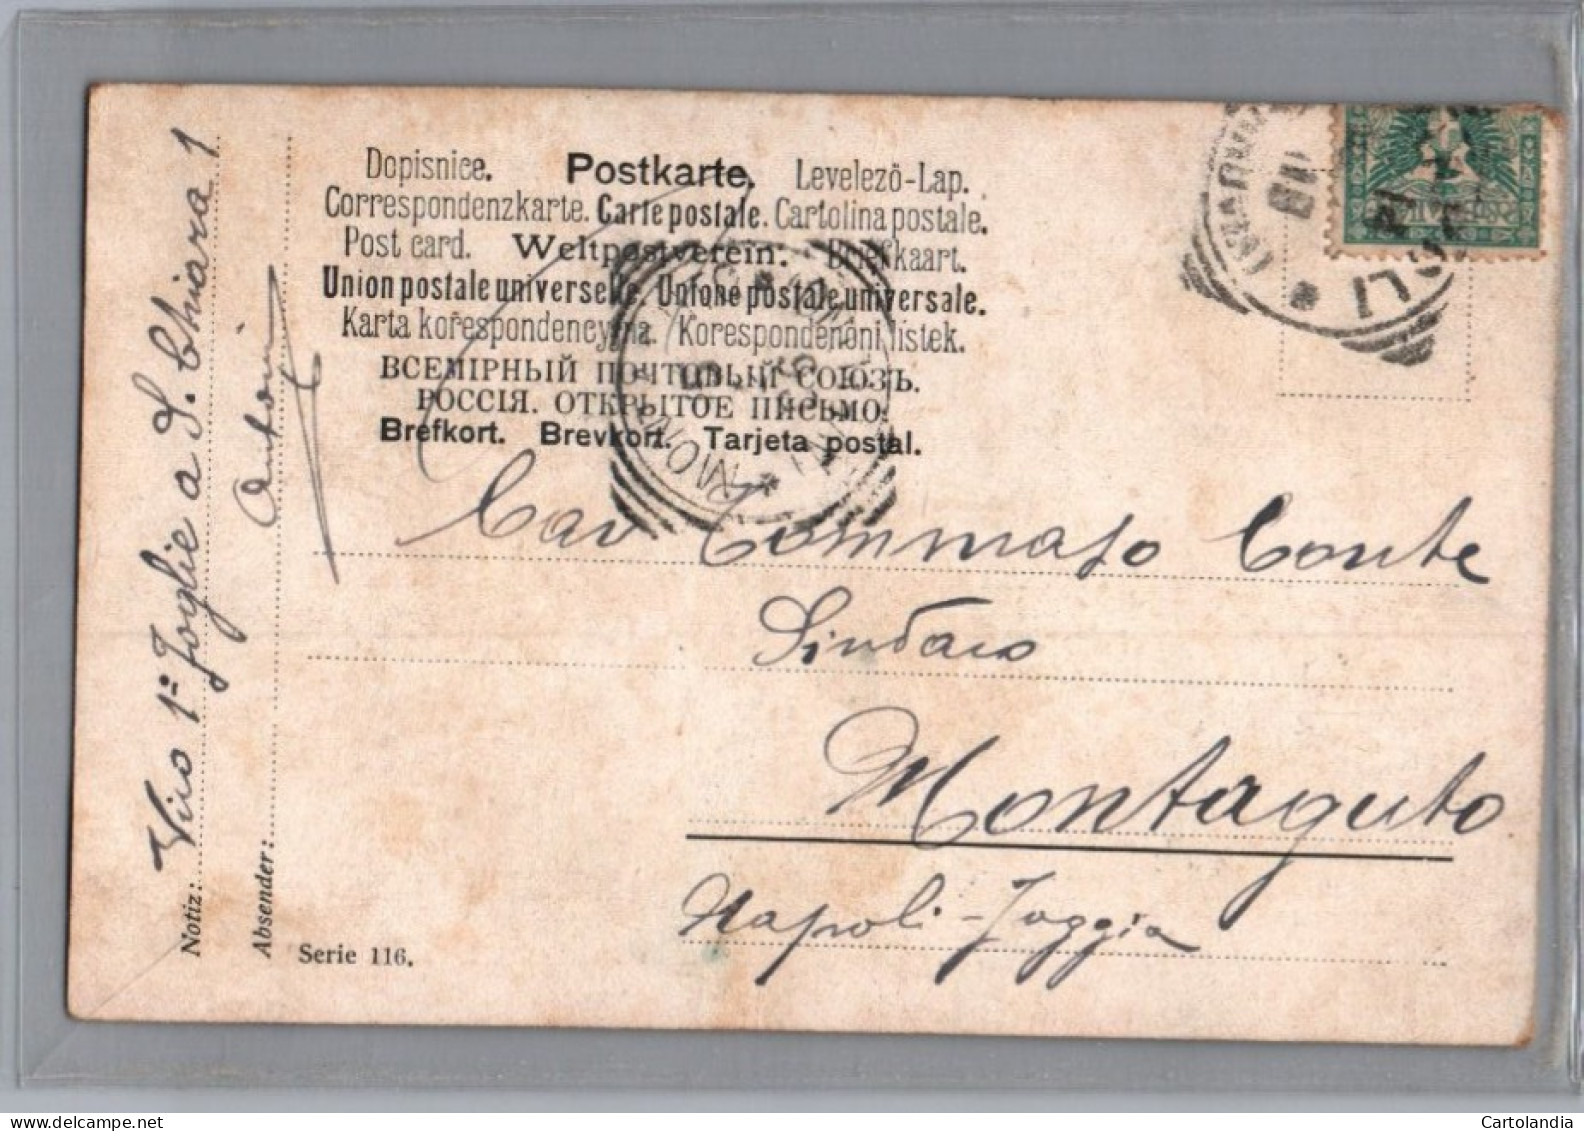 Dopisnice. Postkarte. Levelezö-Lap.
Correspondenzkarte. Carte postale. Cartolina postale.
Post card. Weltpostverein. Briefkaart.
Union postale universelle. Unione postale universale.
Karta korespondencyjna. Korespondenčni listek.
ВСЕМІРНЫЙ ПОЧТОВЫЙ СОЮЗЪ.
РОССІЯ. ОТКРЫТОЕ ПИСЬМО.
Brefkort. Brevkort. Tarjeta postal.
Cav Tommaso Conte
Sindaco
Montaguto
Napoli - Foggia
Vico 1º Foglie a S. Chiara 1
Notiz:
Absender:
Serie 116.
Cartolandia